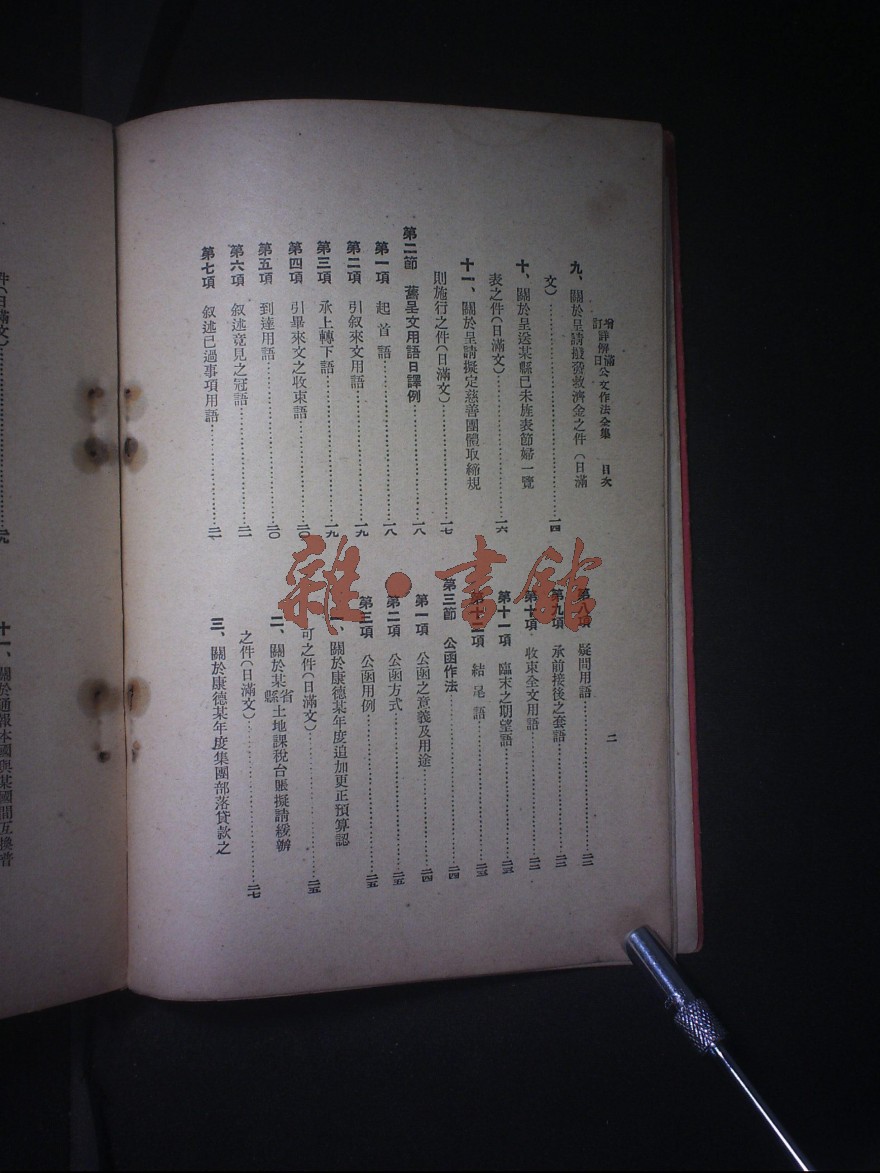 增訂詳解日滿公文作法全集 目次
二
九、關於呈請撥發救濟金之件(日滿
文)……一四
十、關於呈送某縣已未旌表節婦一覽
表之件(日滿文)……一六
十一、關於呈請擬定慈善團體取締規
則施行之件(日滿文)……一七
第二節 舊呈文用語日譯例……一八
第一項 起首語……一八
第二項 引叙來文用語……一九
第三項 承上轉下語……一九
第四項 引畢來文之收束語……二〇
第五項 到達用語……二〇
第六項 叙述意見之冠語……二一
第七項 叙述已過事項用語……二一
第八項 疑問用語……二二
第九項 承前接後之套語……二二
第十項 收束全文用語……二二
第十一項 臨末之期望語……二三
第十二項 結尾語……二三
第三節 公函作法……二四
第一項 公函之意義及用途……二四
第二項 公函方式……二五
第三項 公函用例……二五
一、關於康德某年度追加更正預算認
可之件(日滿文)……二五
二、關於某省縣土地課稅台賬擬請緩辦
之件(日滿文)……二七
三、關於康德某年度集團部落貸款之
件(日滿文)……二九
十一、關於通報本國與某國間互換普
雜·書館